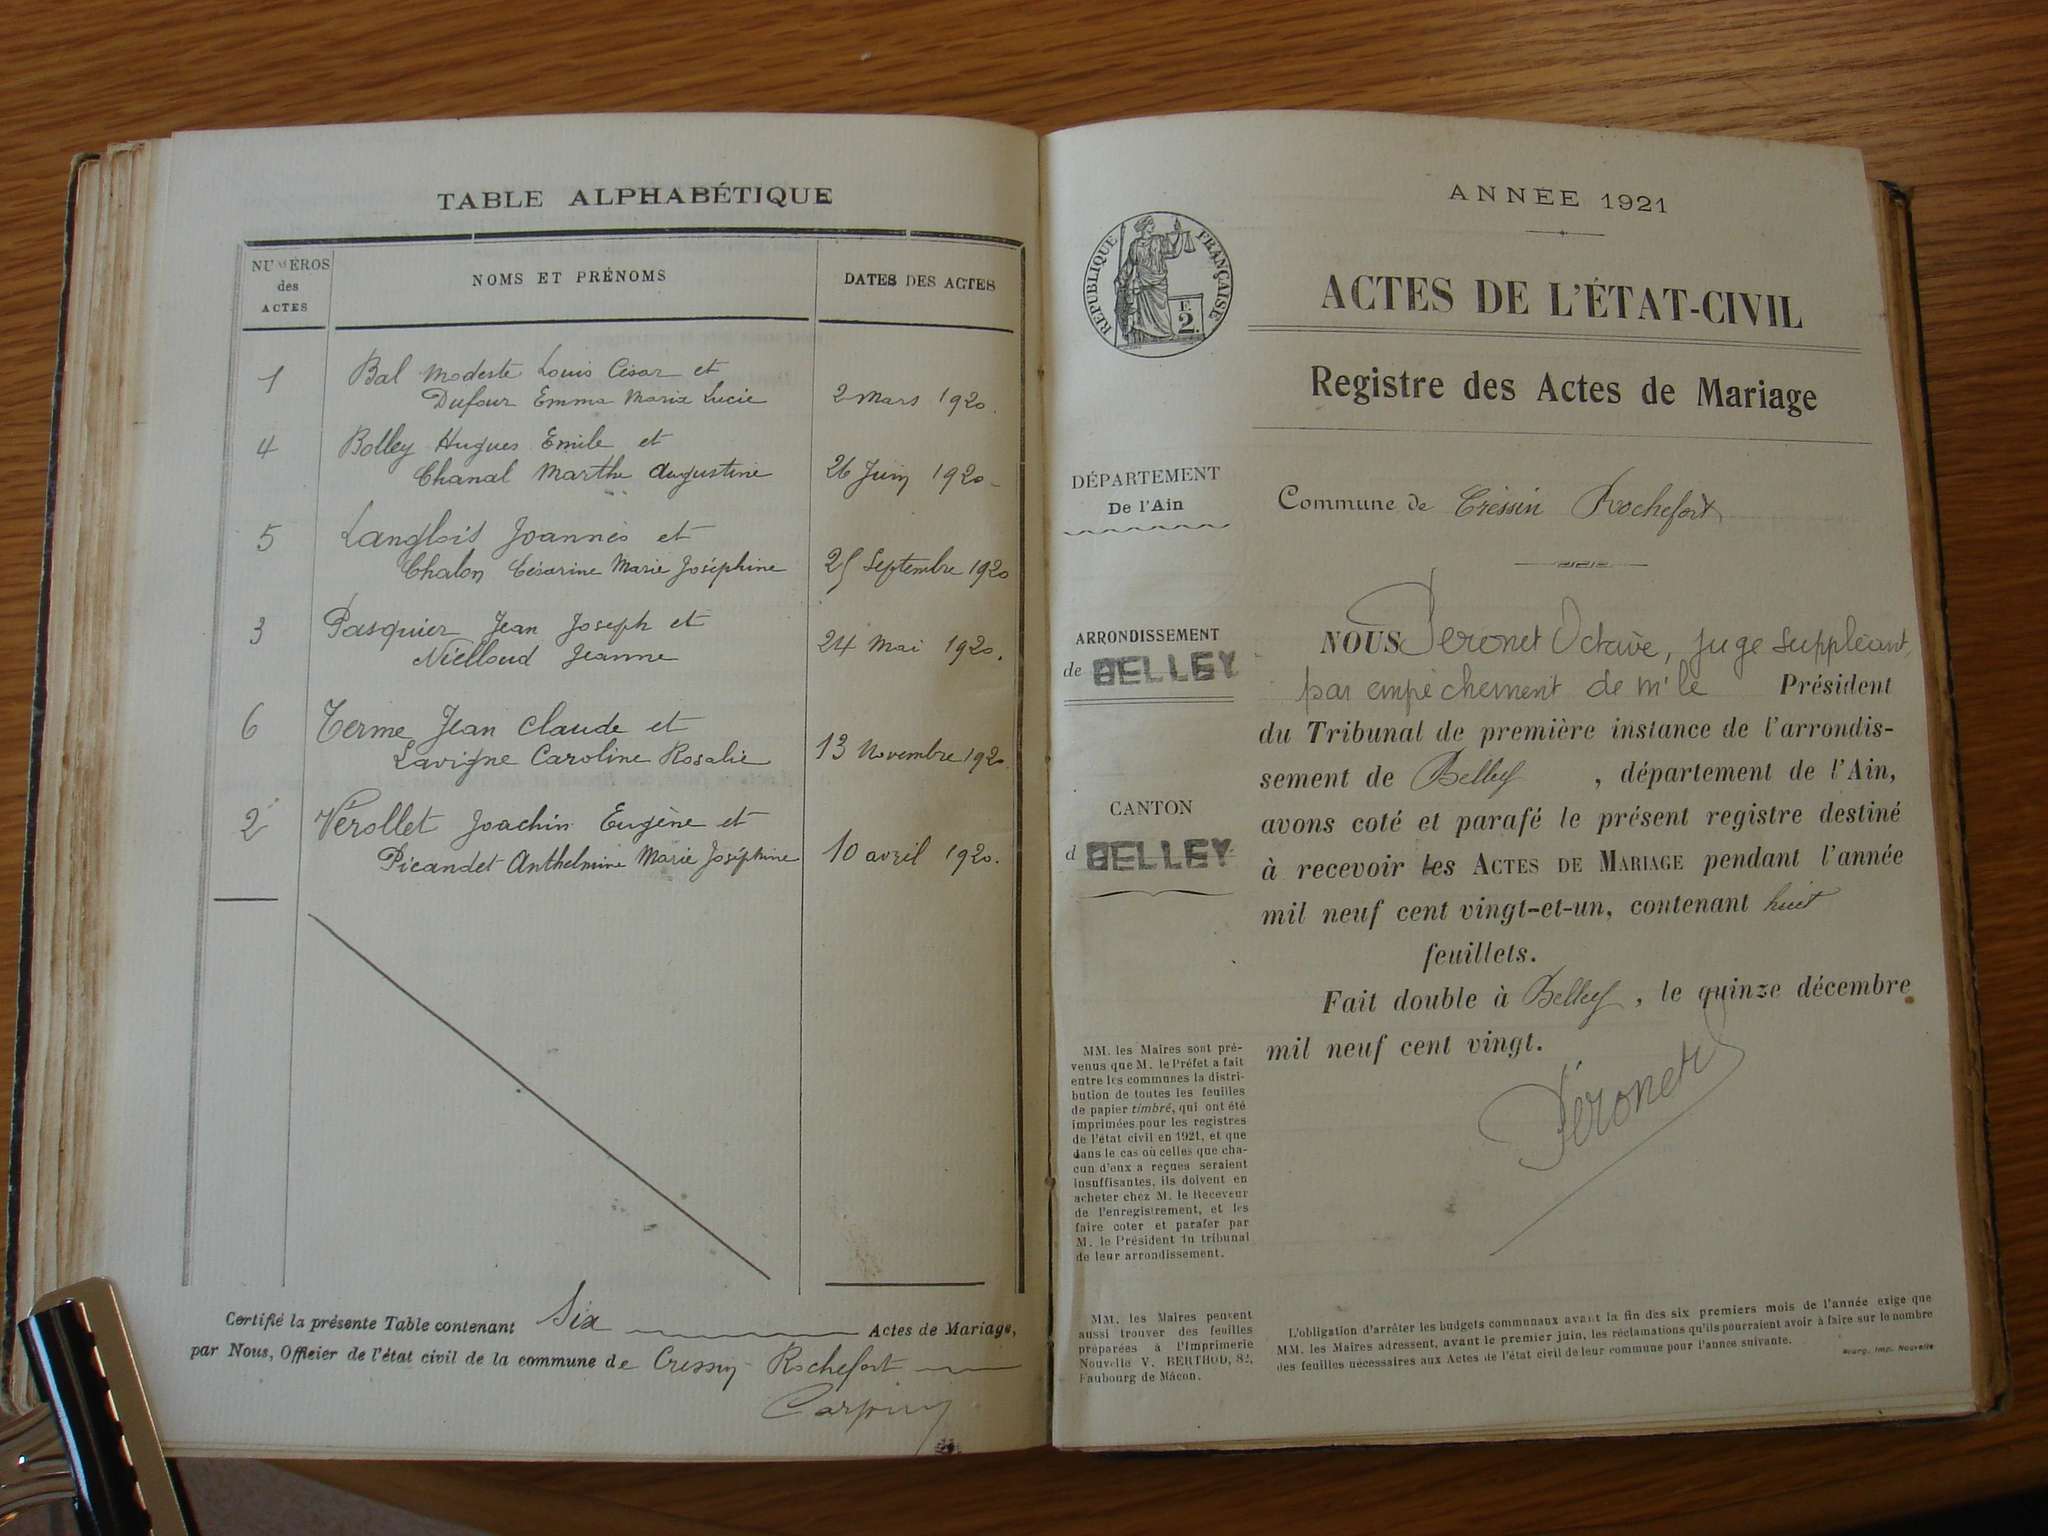 TABLE ALPHABÉTIQUE
NUMÉROS
des
ACTES
NOMS ET PRÉNOMS
DATES DES ACTES
1
Bal Modeste Louis César et
Dufour Emma Maria Lucie
2 Mars 1920.
4
Bolley Hugues Emile et
Chanal Marthe Augustine
26 Juin 1920
5
Langlois Joannès et
Chalon Césarine Marie Joséphine
25 Septembre 1920
3
Pasquier Jean Joseph et
Niélloud Jeanne
24 Mai 1920.
6
Terme Jean Claude et
Lavigne Caroline Rosalie
13 Novembre 1920.
2
Vérollet Joachin Eugène et
Picandet Anthelmine Marie Joséphine
10 avril 1920.
Certifié la présente Table contenant Six Actes de Mariage,
par Nous, Officier de l'état civil de la commune de Cressin Rochefort
ANNÉE 1921
RÉPUBLIQUE FRANÇAISE
2 F.
ACTES DE L'ÉTAT-CIVIL
Registre des Actes de Mariage
DÉPARTEMENT
De l'Ain
Commune de Cressin Rochefort
ARRONDISSEMENT
de BELLEY
CANTON
d BELLEY
NOUS Peronet Octave, Juge suppléant,
par empêchement de Mr le Président
du Tribunal de première instance de l'arrondis-
sement de Belley, département de l'Ain,
avons coté et parafé le présent registre destiné
à recevoir les ACTES DE MARIAGE pendant l'année
mil neuf cent vingt-et-un, contenant huit
feuillets.
Fait double à Belley, le quinze décembre
mil neuf cent vingt.
Péronet
MM. les Maires sont pré-
venus que M. le Préfet a fait
entre les communes la distri-
bution de toutes les feuilles
de papier timbré, qui ont été
imprimées pour les registres
de l'état civil en 1921, et que
dans le cas où celles que cha-
cun d'eux a reçues seraient
insuffisantes, ils doivent en
acheter chez M. le Receveur
de l'enregistrement, et les
faire coter et parafer par
M. le Président du tribunal
de leur arrondissement.
MM. les Maires peuvent
aussi trouver des feuilles
préparées à l'Imprimerie
Nouvelle V. BERTHOD, 82,
Faubourg de Mâcon.
L'obligation d'arrêter les budgets communaux avant la fin des six premiers mois de l'année exige que
MM. les Maires adressent, avant le premier juin, les réclamations qu'ils pourraient avoir à faire sur le nombre
des feuilles nécessaires aux Actes de l'état civil de leur commune pour l'année suivante.
Bourg, Imp. Nouvelle